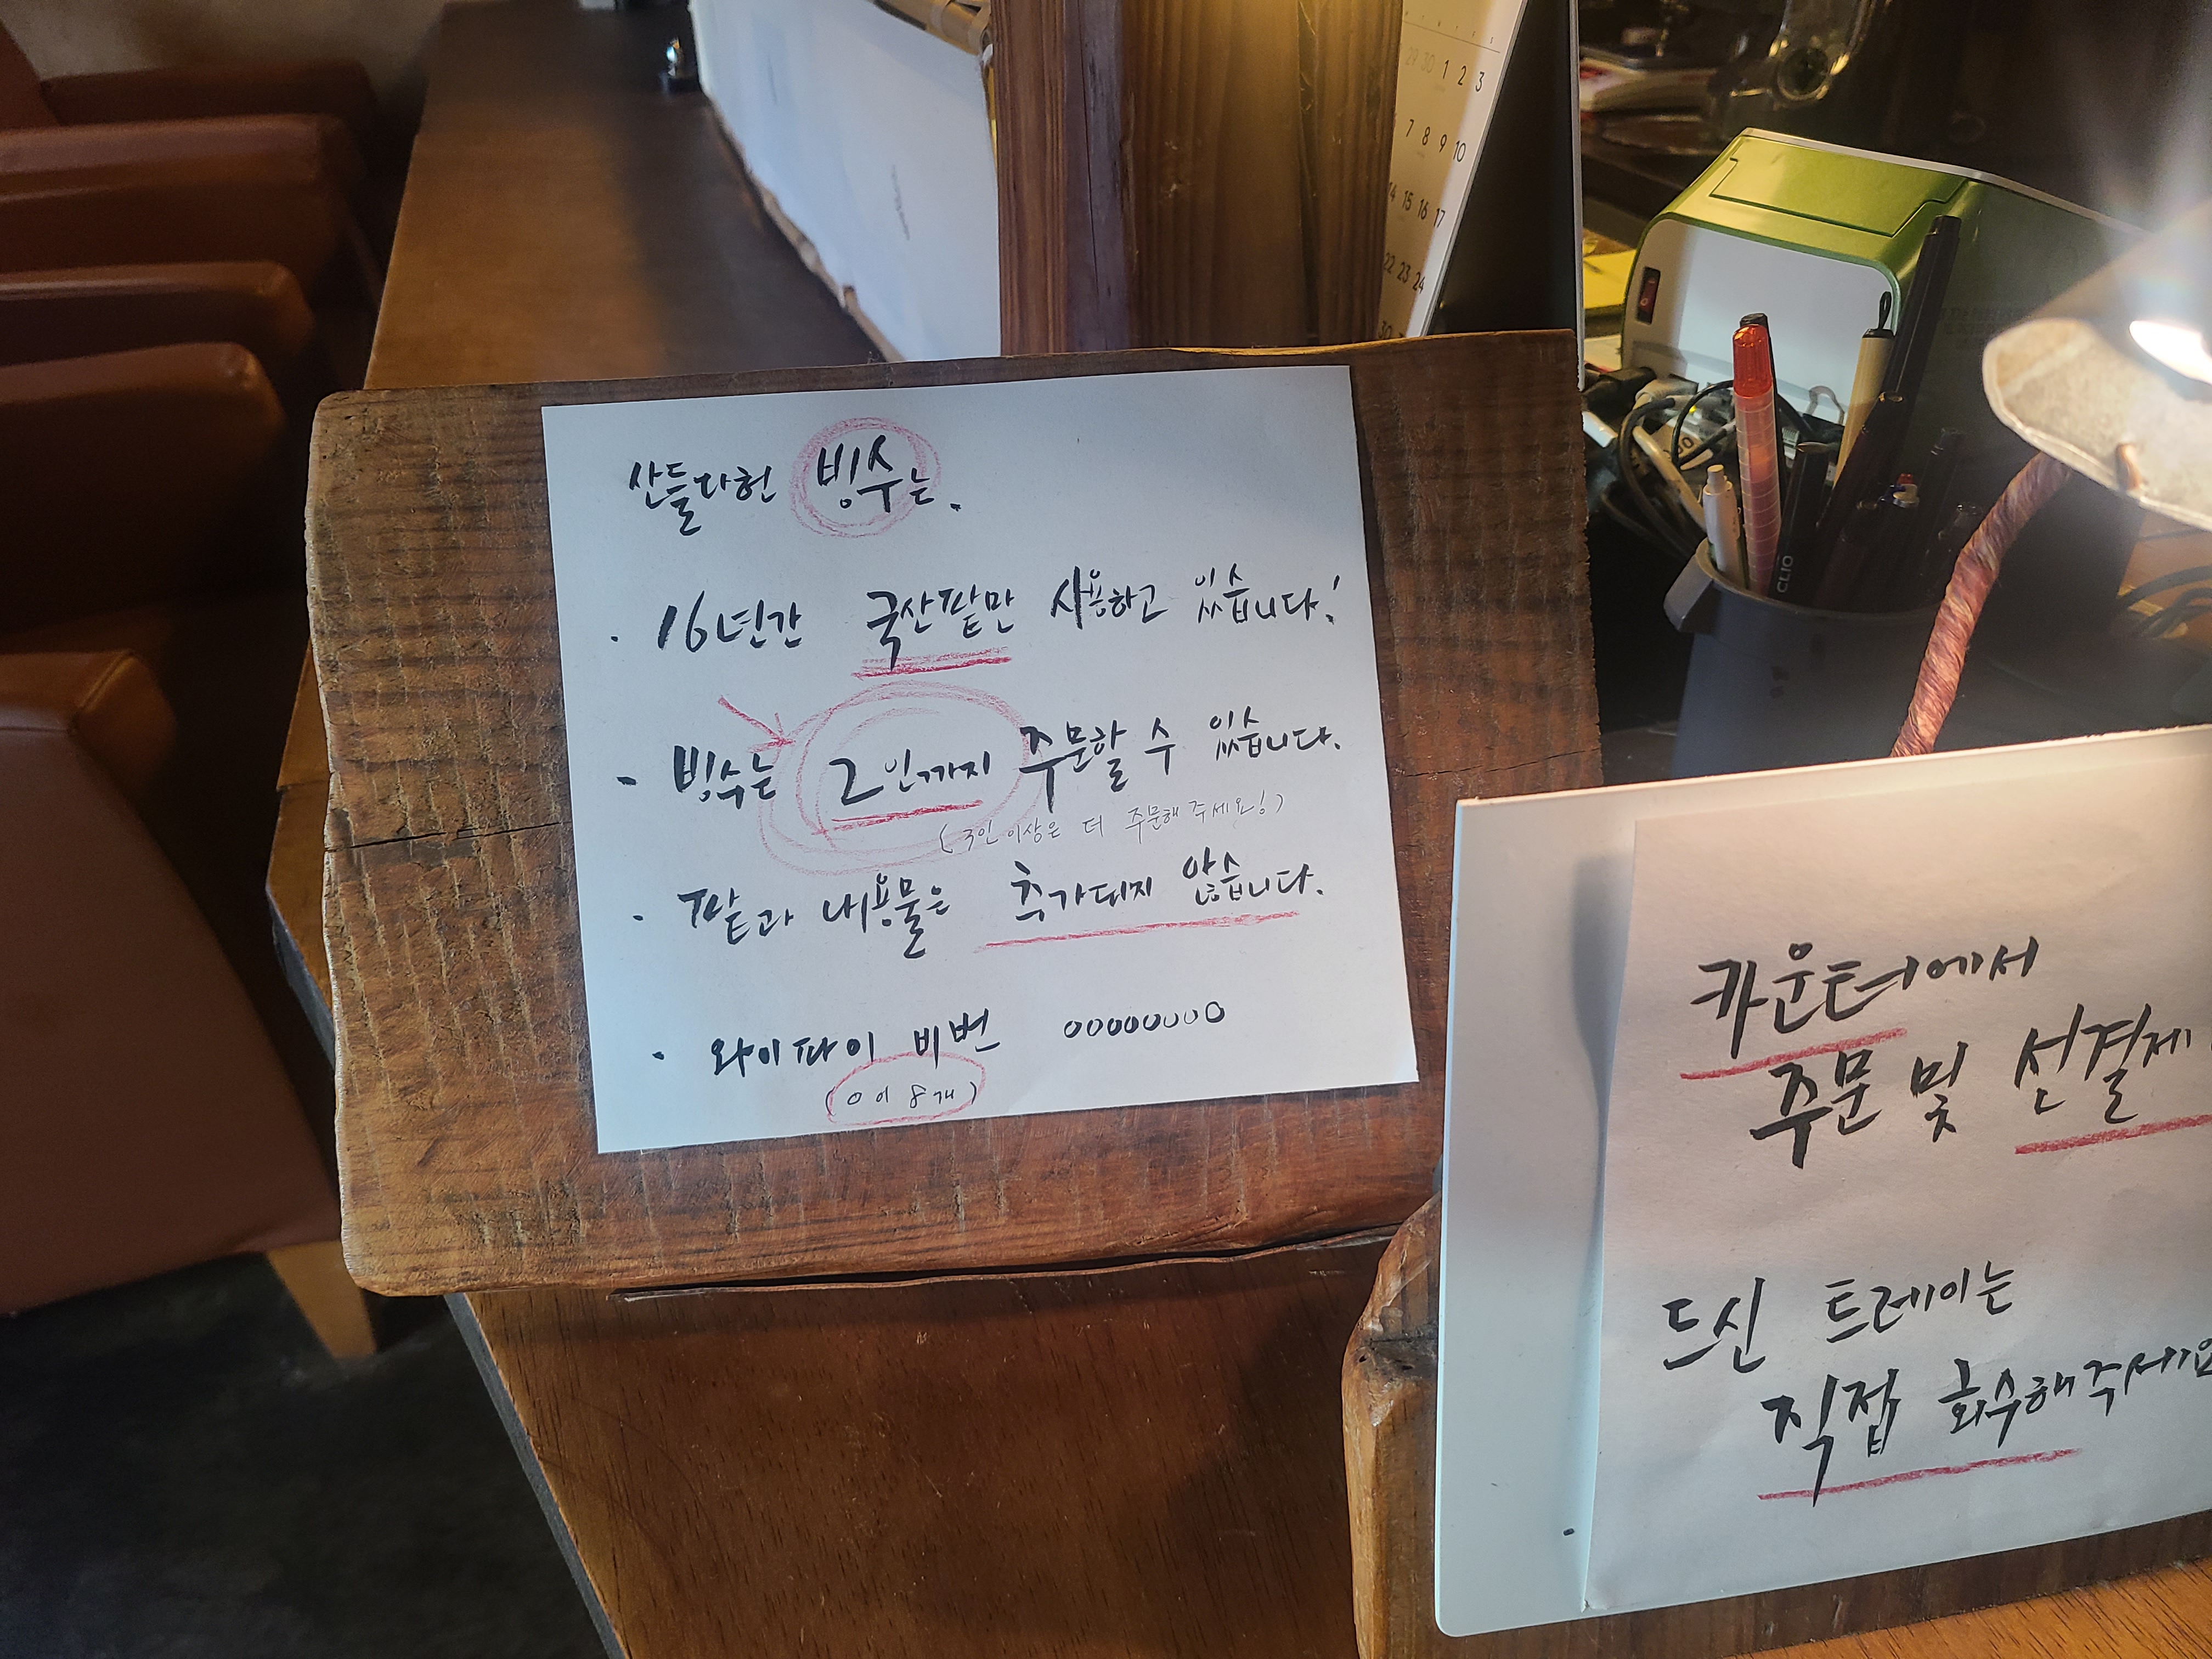 산들다헌 빙수는.
· 16년간 국산팥만 사용하고 있습니다!
- 빙수는 2인까지 주문할 수 있습니다.
(3인 이상은 더 주문해 주세요!)
· 팥과 내용물은 추가되지 않습니다.
· 와이파이 비번 00000000
(0이 8개)
카운터에서
주문 및 선결제
드신 트레이는
직접 회수해주세요
29 30 1 2 3
7 8 9 10
14 15 16 17
22 23 24
30
CLIO